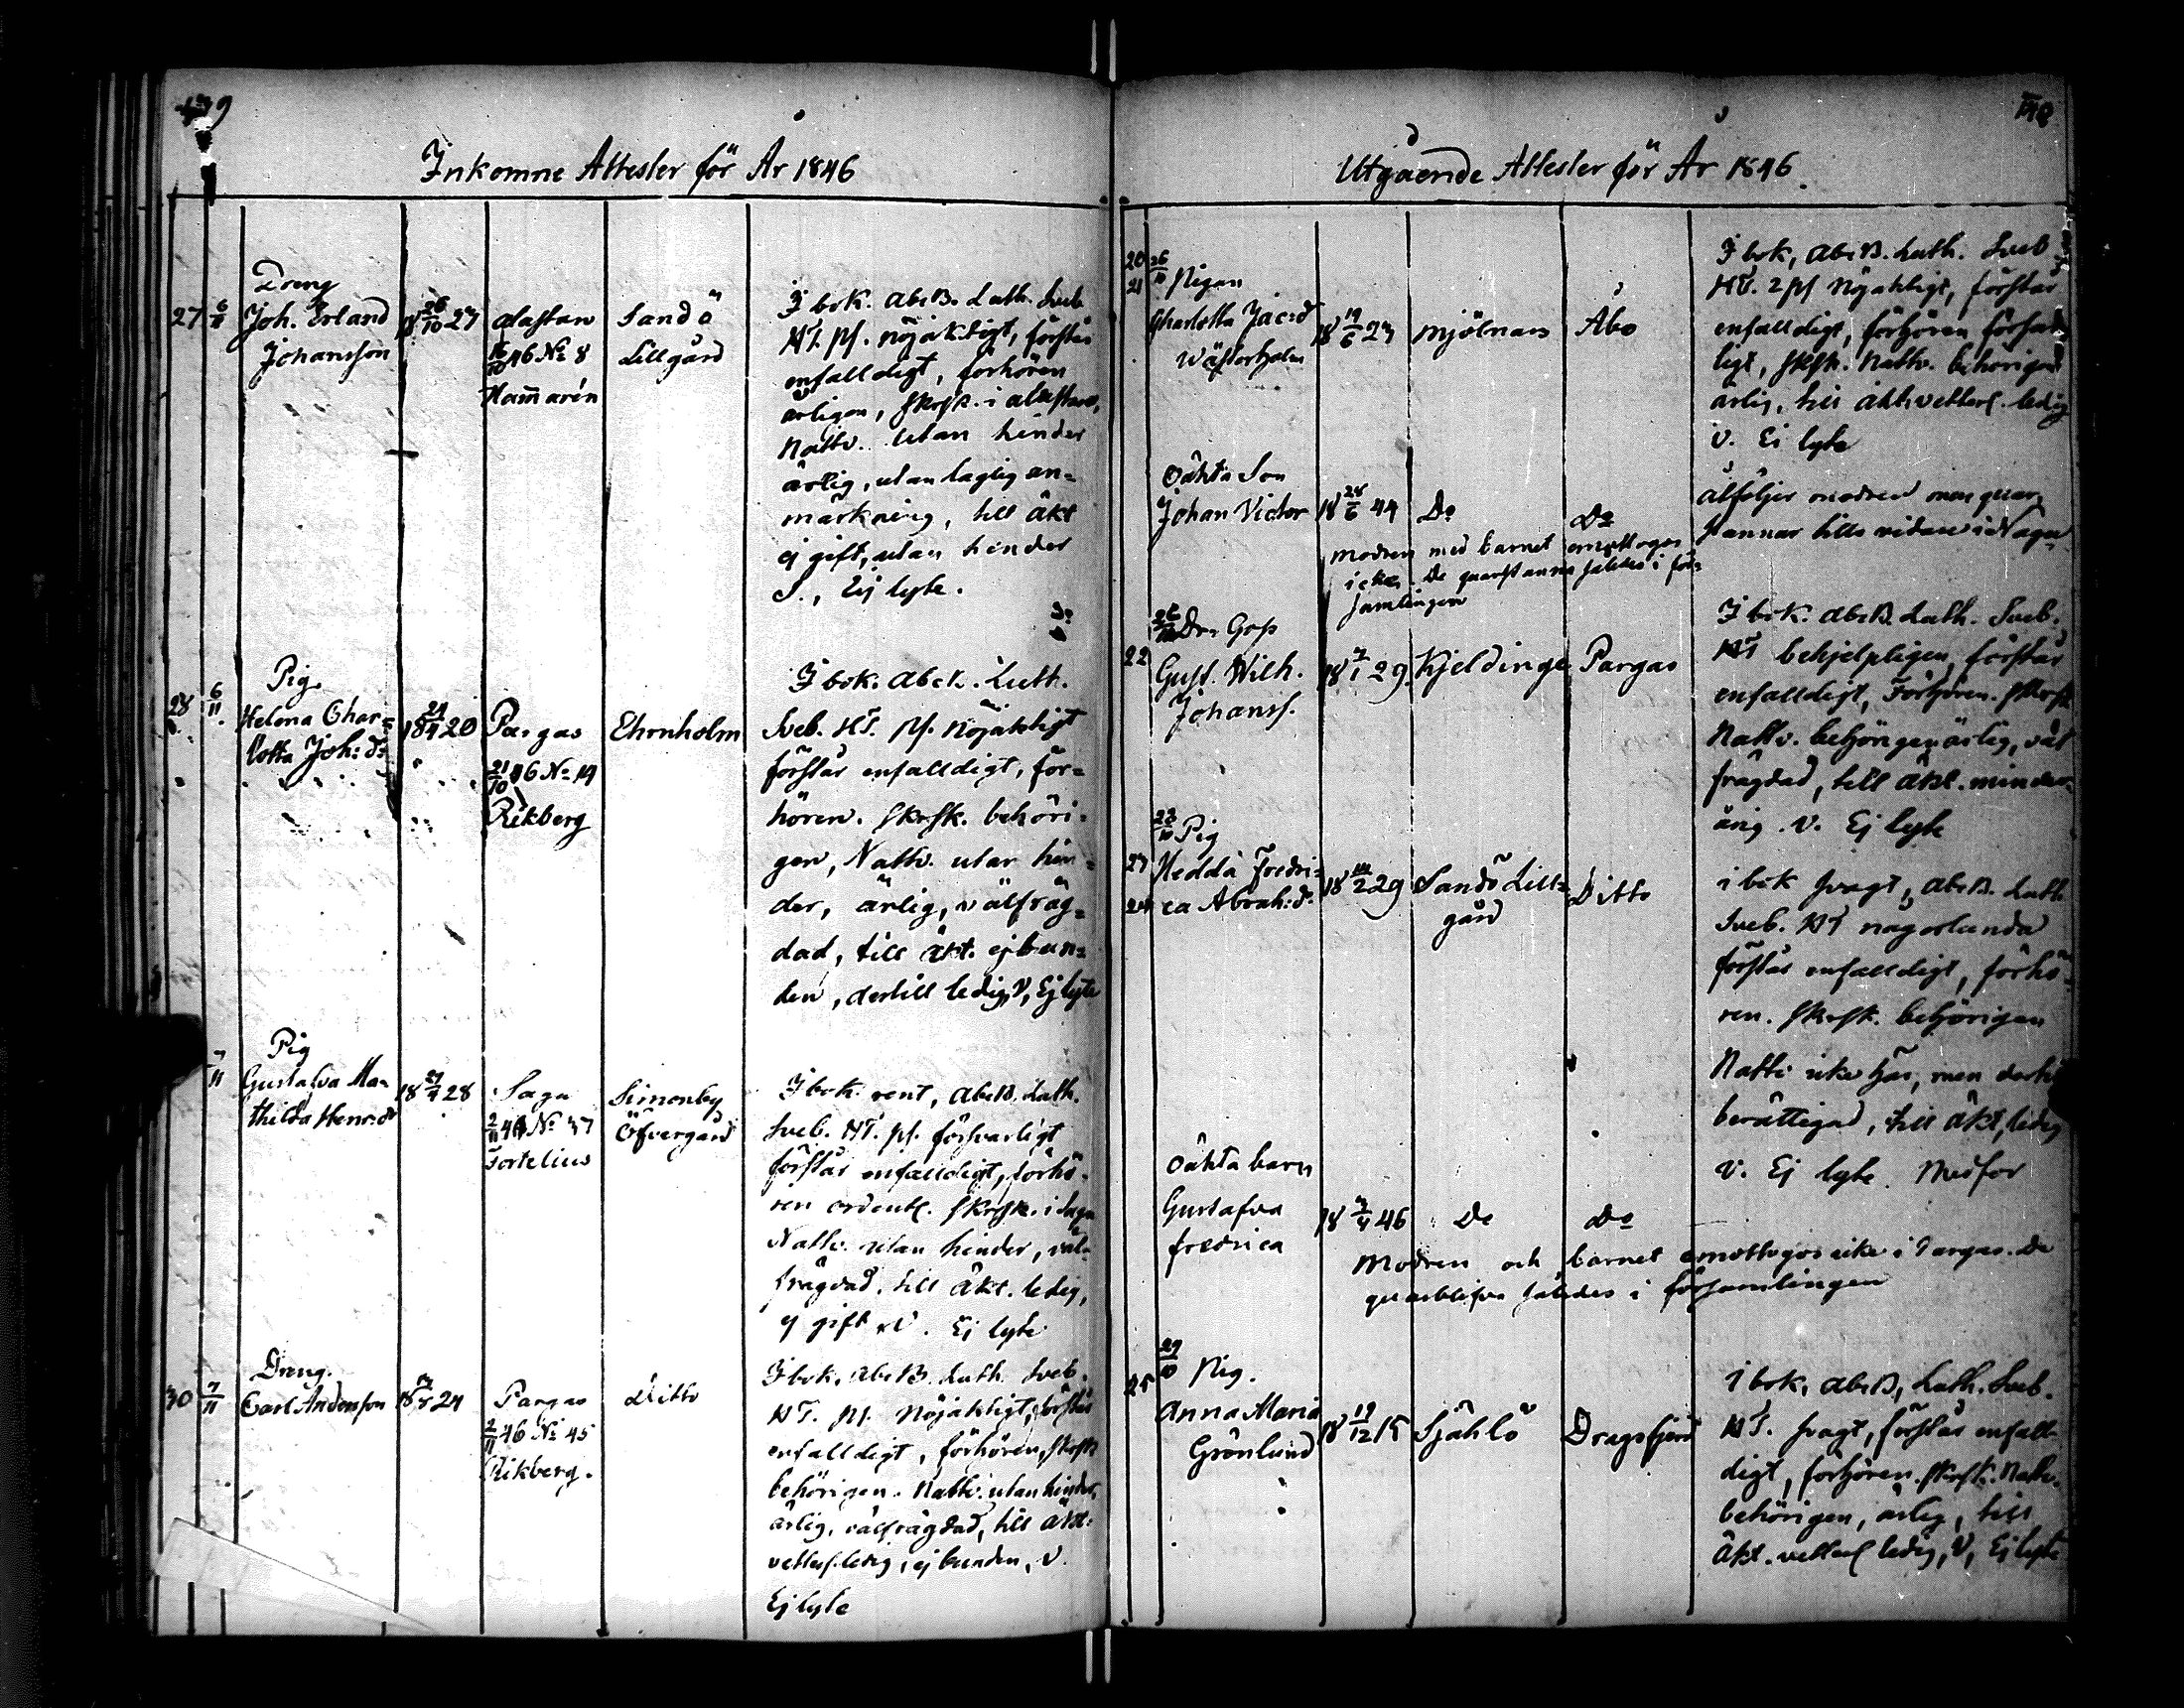 Inkomne Attester för År 1846
27 6/11 Dreng
Joh. Erland
Johansson
18 26/10 27
Alastaro
46 No 8
Hammarén
Sandö
Lillgård
I bok. AbcB. Luth. Sveb.
HT. ps. nöjaktigt, förstår
enfalldigt, förhören
ärligen, skrsk. i Alastaro,
Nattv. utan hinder
ärlig, utan laglig an-
märkning, till äkt
ej gift, utan hinder
S., Ej lyte.
28 6/11 Pig.
Helena Char-
lotta Joh:dr
18 20
Pargas
21/10 46 No 14
Rikberg
Ehrnholm
I bok. Luth.
Sveb. HT. ps. nöjaktigt
förstår enfalldigt, för-
hören. skrsk. behöri-
gen, Nattv. utan hin-
der, ärlig, välfräg-
dad, till äkt. ej bun-
den, dertill ledig, V, Ej lyte
7/11 Pig
Gustafva Ma-
thilda Henr:dr
18 28
Sagu
2/11 No 37
Fortelius
Simonby
Öfvergård
I bok rent, AbcB. Luth.
Sveb. HT. ps. försvarligt
förstår enfalldigt, förhö-
ren ordentl. skrsk. i Sagu
Nattv. utan hinder, väl-
frägdad, till äkt. ledig,
ej gift, V. Ej lyte
30 7/11 Dreng.
Carl Andersson
18 24
Pargas
2/11 46 No 45
Rikberg.
Ditto
I bok, AbcB. Luth. Sveb.
HT. ps. Nöjaktigt, förstår
enfalldigt, förhören, skrsk
behörigen. Nattv. utan hinder,
ärlig, välfrägdad, till äkt.
ledig, ej bunden, V.
Ej lyte
Utgående Attester för År 1846.
20
21
26/10 Pigan
Charlotta Jac:d
Wästerholm
18 19/6 23
Mjölnars
Åbo
I bok, AbcB. Luth. Sveb
HT. 2 ps nöjaktigt, förstår
enfalldigt, förhören försvar
ligt, skrsk. Nattv. behörigen
ärlig, till äkt. ledig
V. Ej lyte
Oäkta Son
Johan Victor
18 28/6 44
Do
Do
åtföljer modren men quar
stannar tills vidare i Nagu
Modren med barnet emottoges
icke. De quarstanna således i för-
samlingen
22
26/10 Dr. Goss
Gust. Wilh.
Johanss.
18 7/1 29.
Kjeldinge
Pargas
I bok. AbcB. Luth. Sveb.
HT behjelpligen, förstår
enfalldigt, Förhören. skrsk
Nattv. behörigen ärlig, väl
frägdad, till äkt. minder-
årig. V. Ej lyte
Pig
Hedda Fredri-
ca Abrah:dr
24
18 29
Sandö Lill-
gård
Ditto
i bok svagt, AbcB. Luth
Sveb. HT någorlunda
förstår enfalldigt, förhö-
ren. skrsk. behörigen
Nattv icke här, men dertill
berättigad, till äkt, ledig
V. Ej lyte. Medför
Oäkta barn
Gustafva
Fredrica
18 46
Do
Do
Modren och barnet emottogos icke i Pargas. De
quarblifva således i församlingen
25
29/10 Pig.
Anna Maria
Grönlund
18 19/12 15
Själö
Dragsfjerd
I bok, AbcB, Luth. Sveb.
HT. svagt, förstår enfall-
digt, förhören. skrsk. Nattv.
behörigen, ärlig, till
äkt. ledig, V, Ej lyte